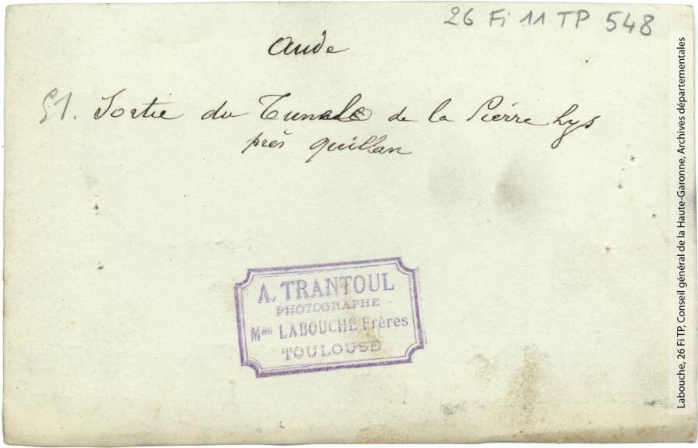 26 Fi 11 TP 548
Aude
51. Sortie du Tunele de la Pierre Lys
près Quillan
A. TRANTOUL
PHOTOGRAPHE
Mon LABOUCHE Frères
TOULOUSE
Labouche, 26 Fi TP, Conseil général de la Haute-Garonne, Archives départementales